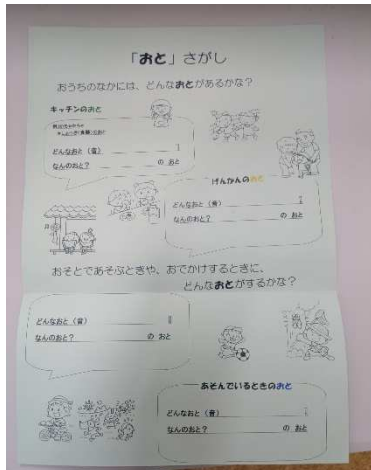 「おと」さがし
おうちのなかには、どんなおとがあるかな？
キッチンのおと
どんなおと（音）　！
なんのおと？　の おと
げんかんのおと
どんなおと（音）　！
なんのおと？　の おと
おそとであそぶときや、おでかけするときに、
どんなおとがするかな？
どんなおと（音）　！
なんのおと？　の おと
あそんでいるときのおと
どんなおと（音）　！
なんのおと？　の おと